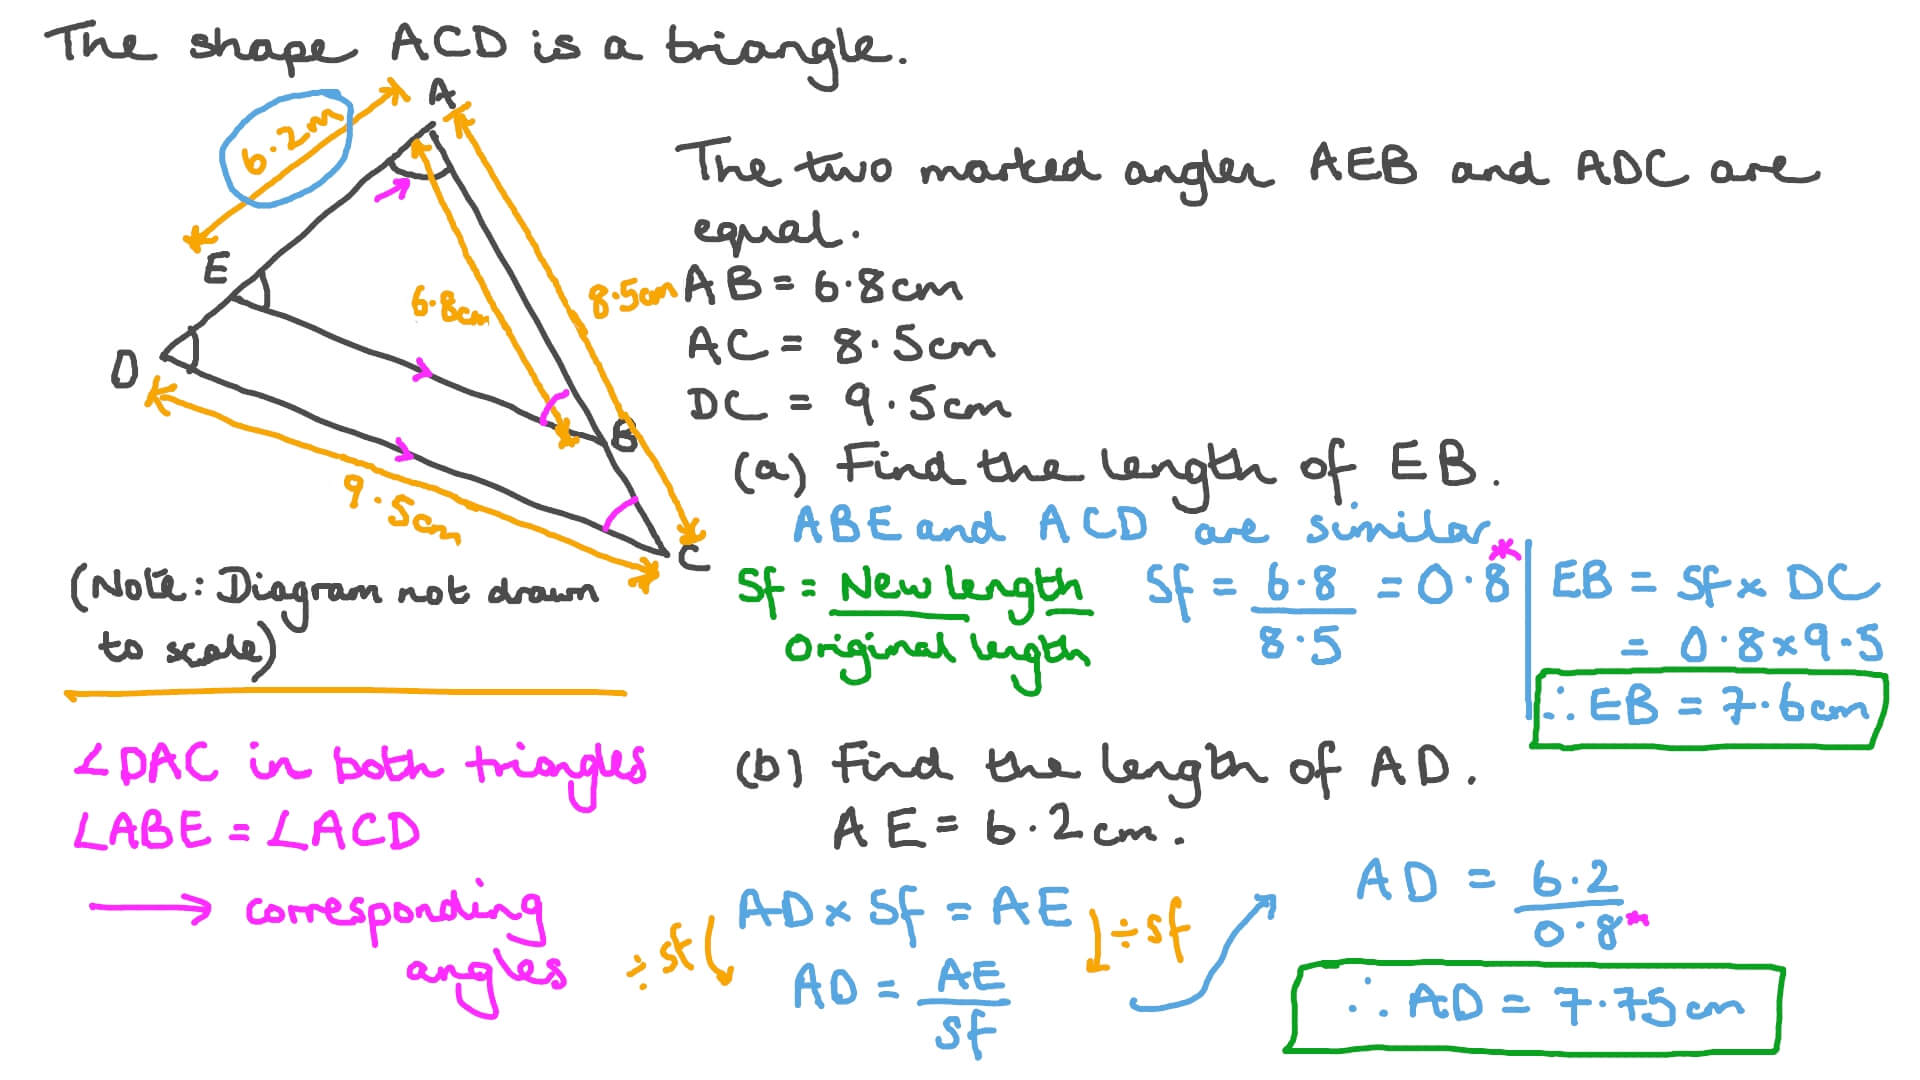 The shape ACD is a triangle.
A
6.2m
E
D
6.8cm
8.5cm
B
C
9.5cm
(Note: Diagram not drawn
to scale)
The two marked angles AEB and ADC are
equal.
AB = 6.8cm
AC = 8.5cm
DC = 9.5cm
(a) Find the length of EB.
ABE and ACD are similar
Sf = New length / Original length
Sf = 6.8 / 8.5 = 0.8*
EB = Sf x DC
= 0.8 x 9.5
∴ EB = 7.6cm
∠DAC in both triangles
∠ABE = ∠ACD
→ corresponding
angles
(b) Find the length of AD.
AE = 6.2cm.
AD x Sf = AE
÷ sf
÷ sf
AD = AE / Sf
AD = 6.2 / 0.8*
∴ AD = 7.75cm